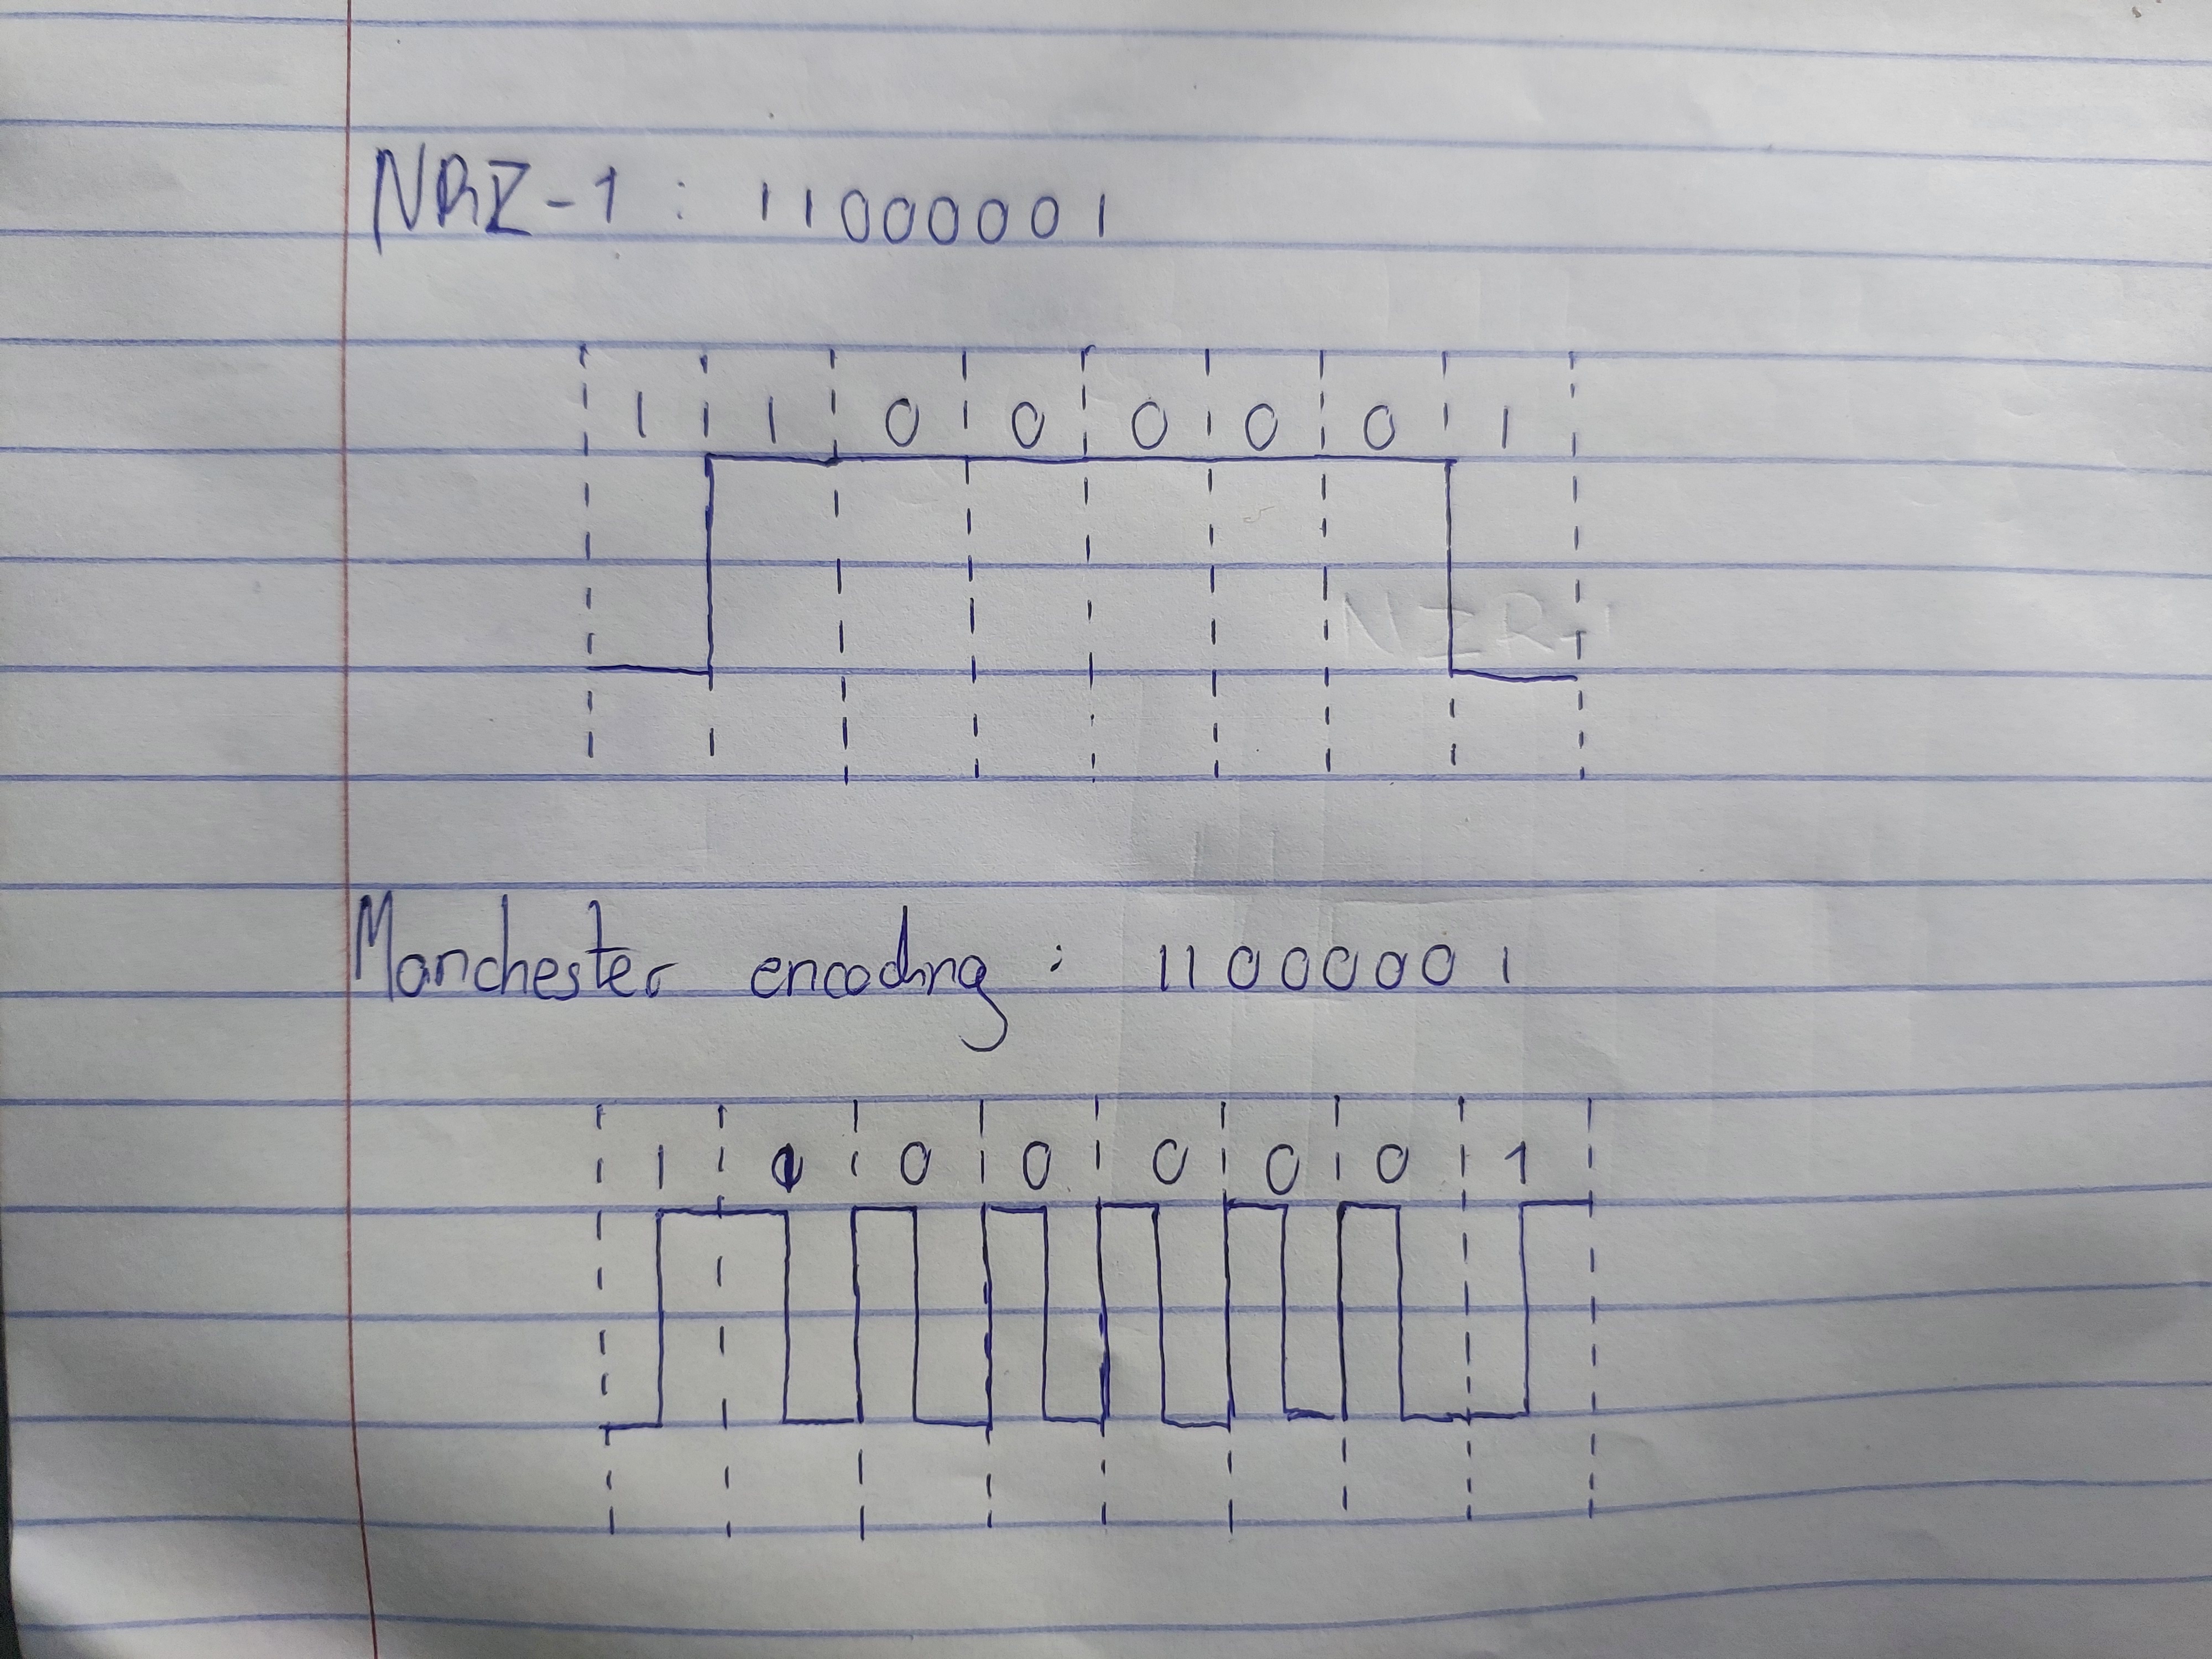 NRZ-1 : 11000001
1 1 0 0 0 0 0 1
Manchester encoding : 11000001
1 1 0 0 0 0 0 1